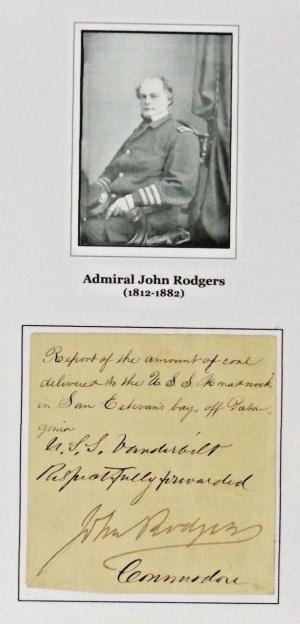 Admiral John Rodgers
(1812-1882)
Report of the amount of coal
delivered to the U S S Monadnock
in San Estevan's bay, off Pata-
gonia
U.S.S. Vanderbilt
Respectfully forwarded
John Rodgers
Commodore